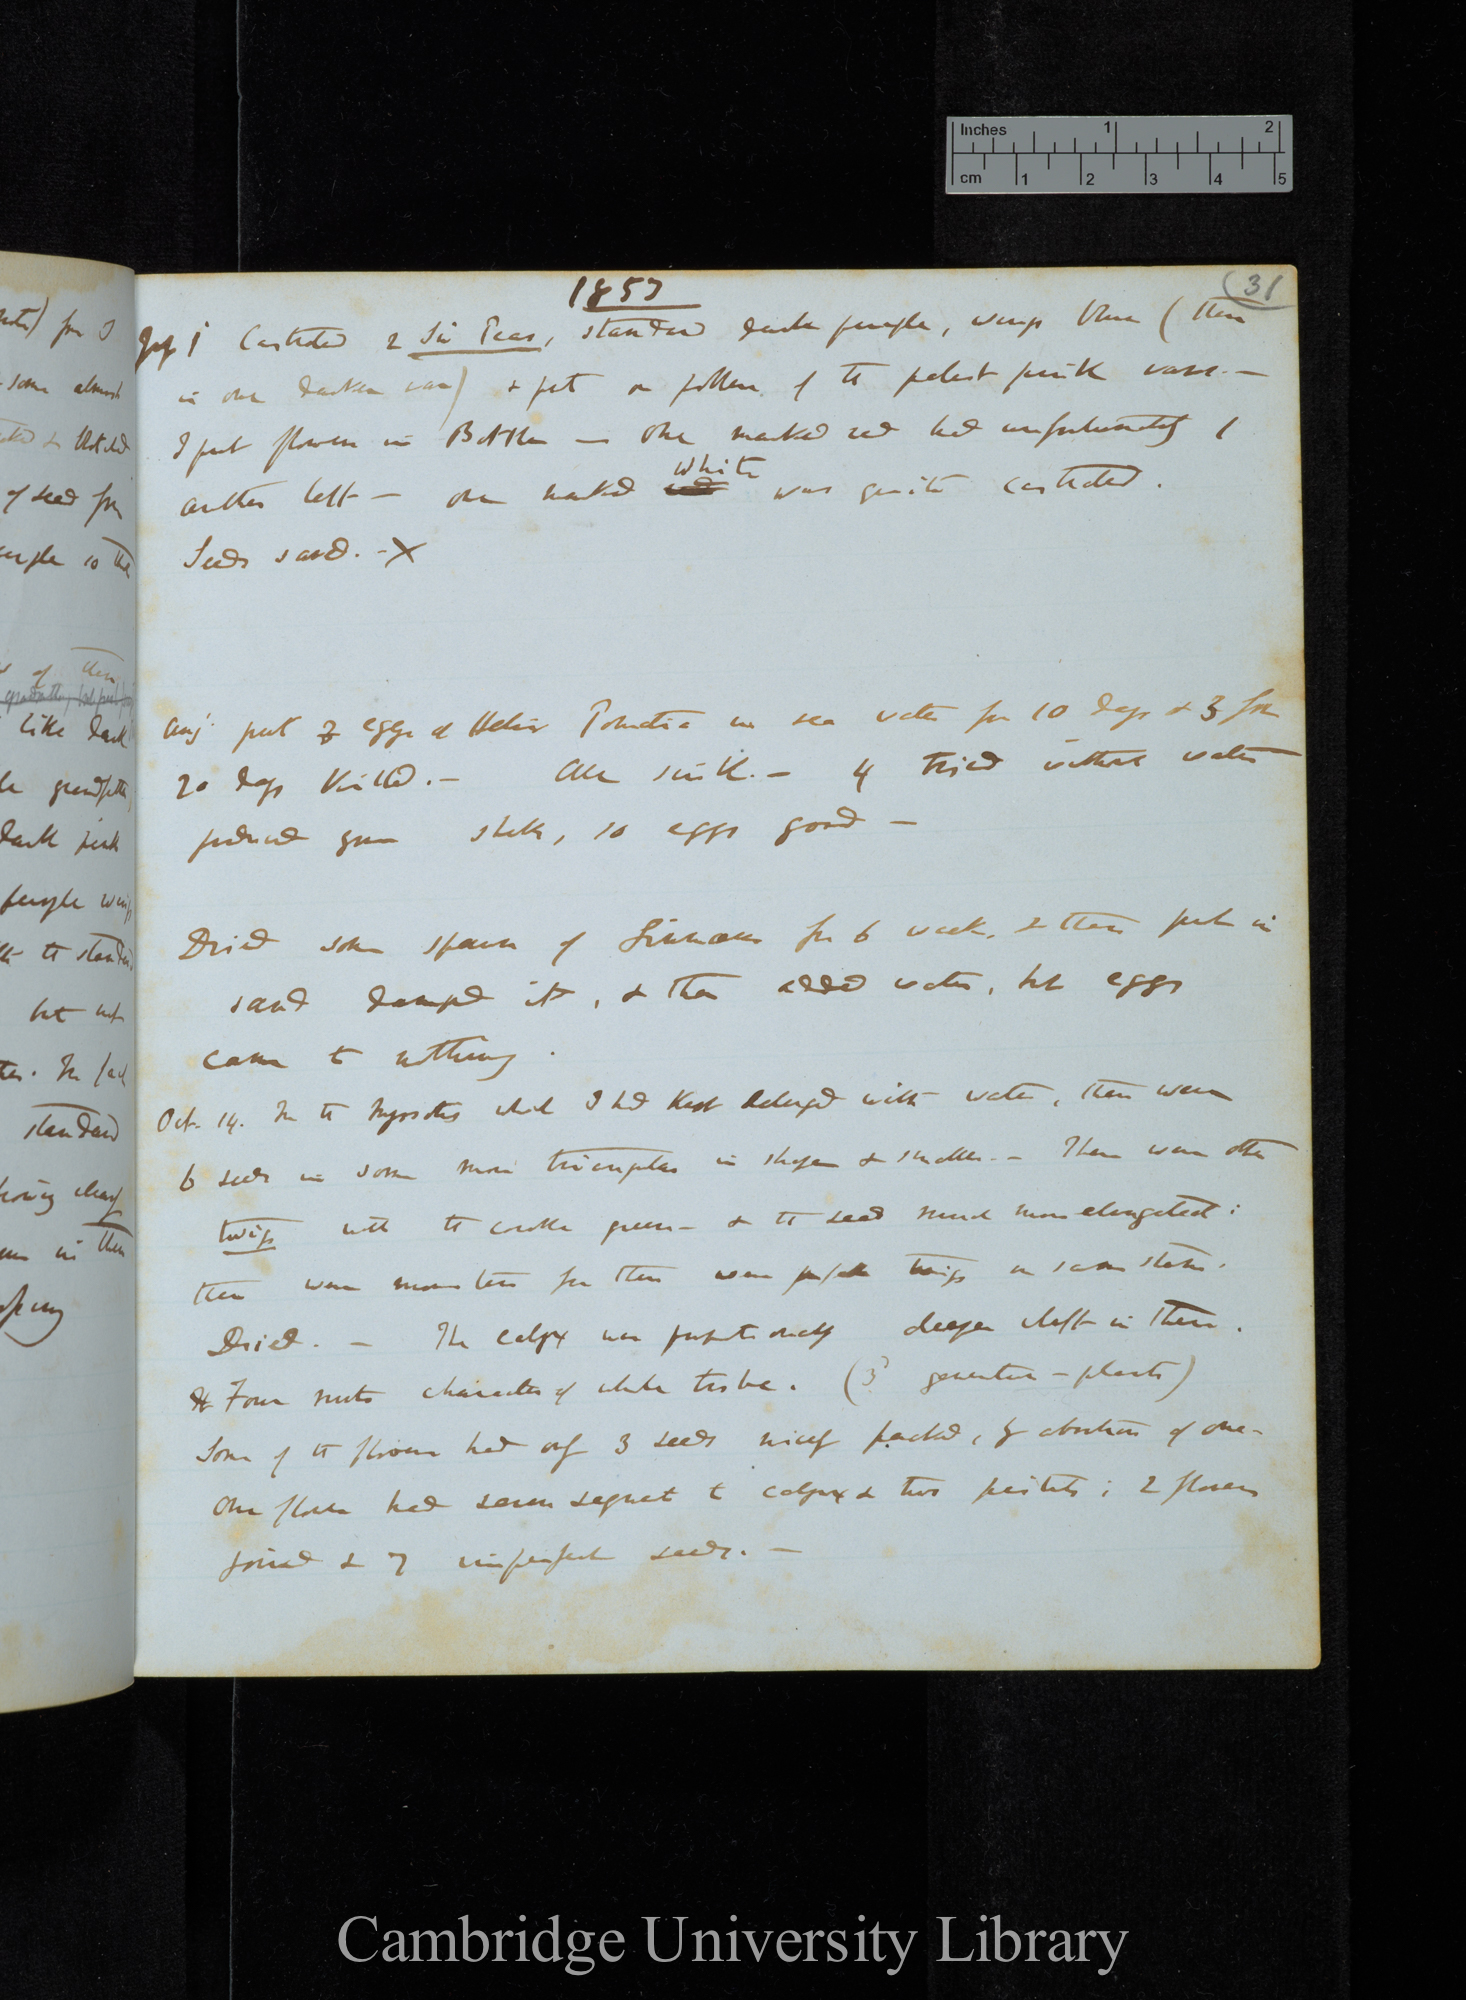 Inches 1 2
cm 1 2 3 4 5
1857
(31
1 Castrated 2 Sw Peas, standard dark purple, wings blue (there
is one darker var) & put on pollen of the palest pink var. —
I put flowers in Bottle — One marked red had unfortunately 1
anther left — one marked white was quite castrated.
Seeds saved. — X
Aug. put 3 eggs of Helix Pomatia in sea water for 10 days & 3 for
20 days killed. — All sink. — 4 tried without water
produced young shells, so eggs good —
Dried some spawn of Limnæus for 6 weeks, & then put in
sand damped it, & then added water, but eggs
came to nothing.
Oct. 14. In the Myosotis which I had kept deluged with water, there were
6 seeds in some more triangular in shape & smaller. — There were other
twigs with the corolla green — & the seed much more elongated;
there were monsters for there were perfect twigs on same stems.
Dried. — The calyx was proportionally deeper cleft in these.
Four nuts character of whole tribe. (3d generation — plants)
Some of the flowers had only 3 seeds nicely packed, by abortion of one —
One flower had seven segment to calyx & two pistils; 2 flowers
joined & 7 imperfect seeds. —
for I
some almost
of seed from
purple so the
of these
like dark
grandfather
dark pink
purple wings
the standard
but not
In fact
standard
in these
Cambridge University Library